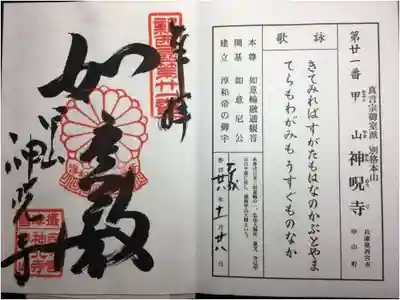 真言宗御室派 別格本山
第廿一番 甲山神呪寺
兵庫県西宮市
甲山町
詠歌
きてみればすがたもはなのかぶとやま
てらもわがみもうすぐものなか
本尊 如意輪融通観音
開基 如意尼公
建立 淳和帝の御宇
平成廿六年十一月廿八日
奉拝
新西国第廿一番
如意殿
神呪寺